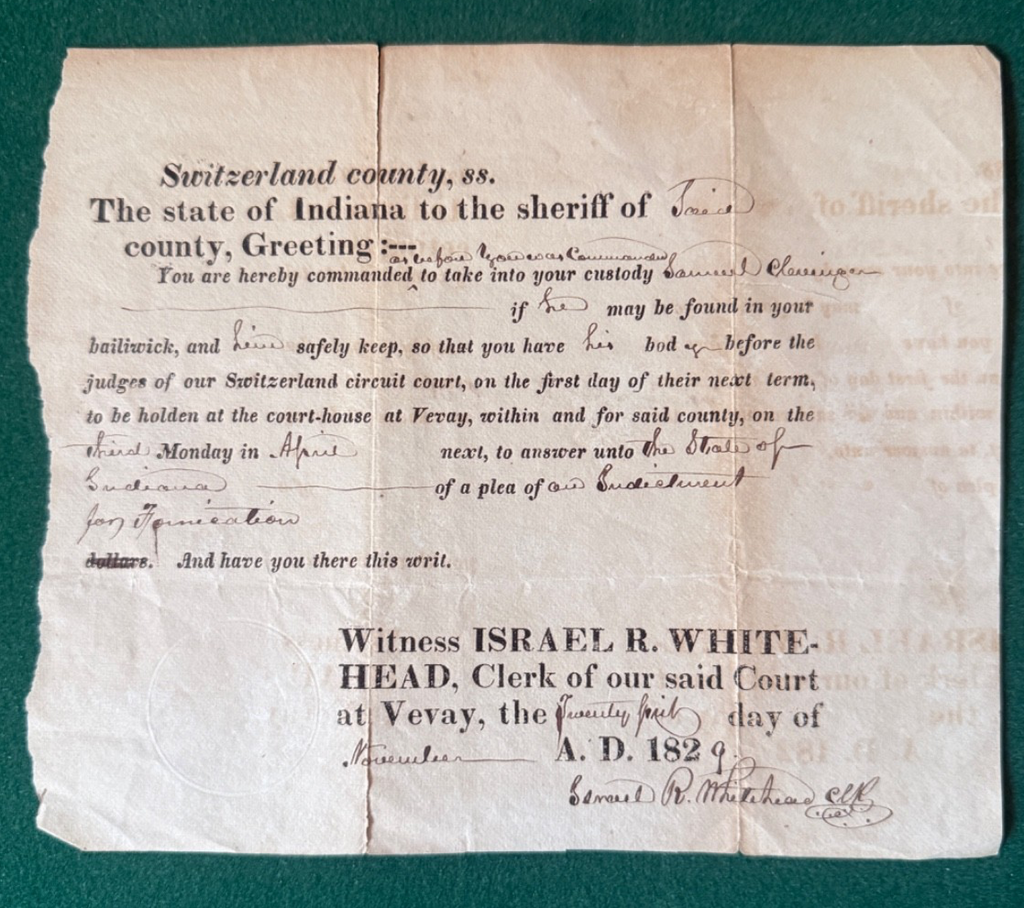 Switzerland county, ss.
The state of Indiana to the sheriff of
county, Greeting :---
as before you was Commanded
You are hereby commanded ^ to take into your custody Samuel Clevenger
if he may be found in your
bailiwick, and him safely keep, so that you have his body before the
judges of our Switzerland circuit court, on the first day of their next term,
to be holden at the court-house at Vevay, within and for said county, on the
third Monday in April next, to answer unto the State of
Indiana of a plea of an Indictment
for Fornication
dollars. And have you there this writ.
Witness ISRAEL R. WHITE-
HEAD, Clerk of our said Court
at Vevay, the Twenty first day of
November A. D. 1829.
Israel R. Whitehead Clk